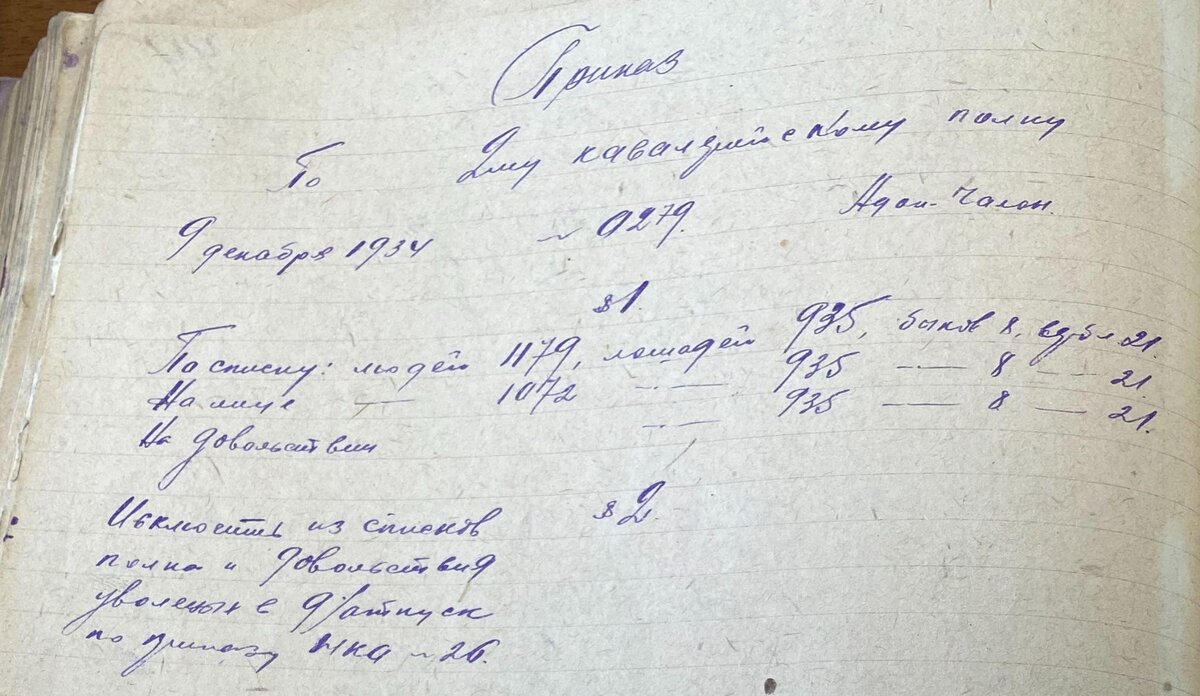 Приказ
По 2му кавалерийскому полку
9 декабря 1934 № 0279. Адон-Чалон.
§1.
По списку: людей 1179, лошадей 935, быков 8, 21.
На лице —— 1072 —— 935 —— 8 —— 21.
На довольствии —— 935 —— 8 —— 21.
§2.
Исключить из списков
полка и довольствия
уволеных в д/отпуск
по приказу НКА № 26.